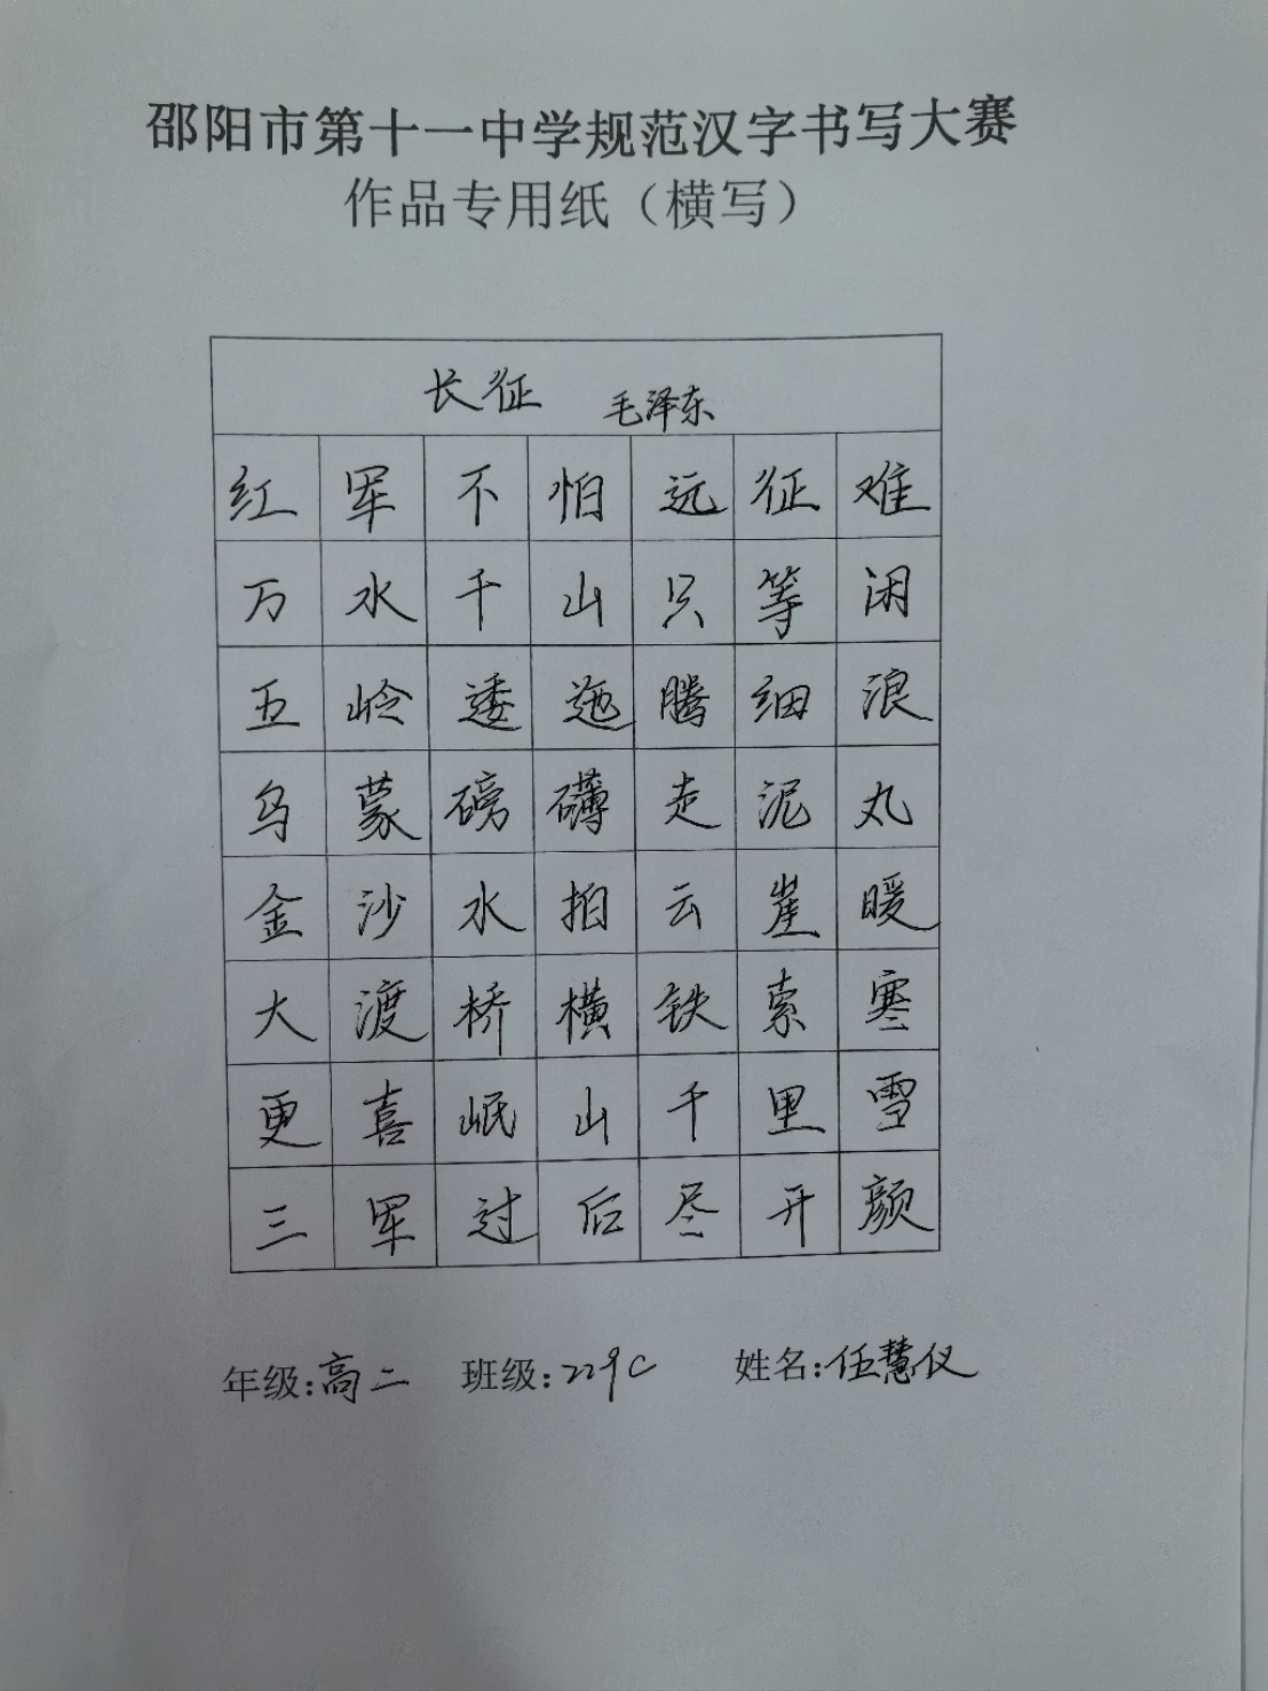 邵阳市第十一中学规范汉字书写大赛
作品专用纸（横写）
长征 毛泽东
红军不怕远征难
万水千山只等闲
五岭逶迤腾细浪
乌蒙磅礴走泥丸
金沙水拍云崖暖
大渡桥横铁索寒
更喜岷山千里雪
三军过后尽开颜
年级:高二 班级:229C 姓名:任慧仪